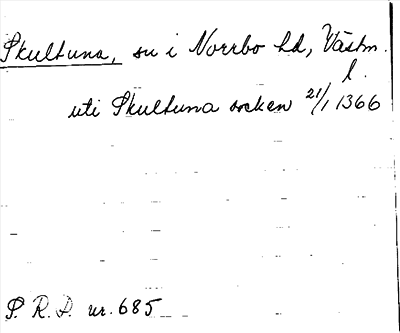 Skultuna, sn i Norrbo hd, Västm.
l.
uti Skultuna socken 21/1 1366
P. R. P. nr. 685